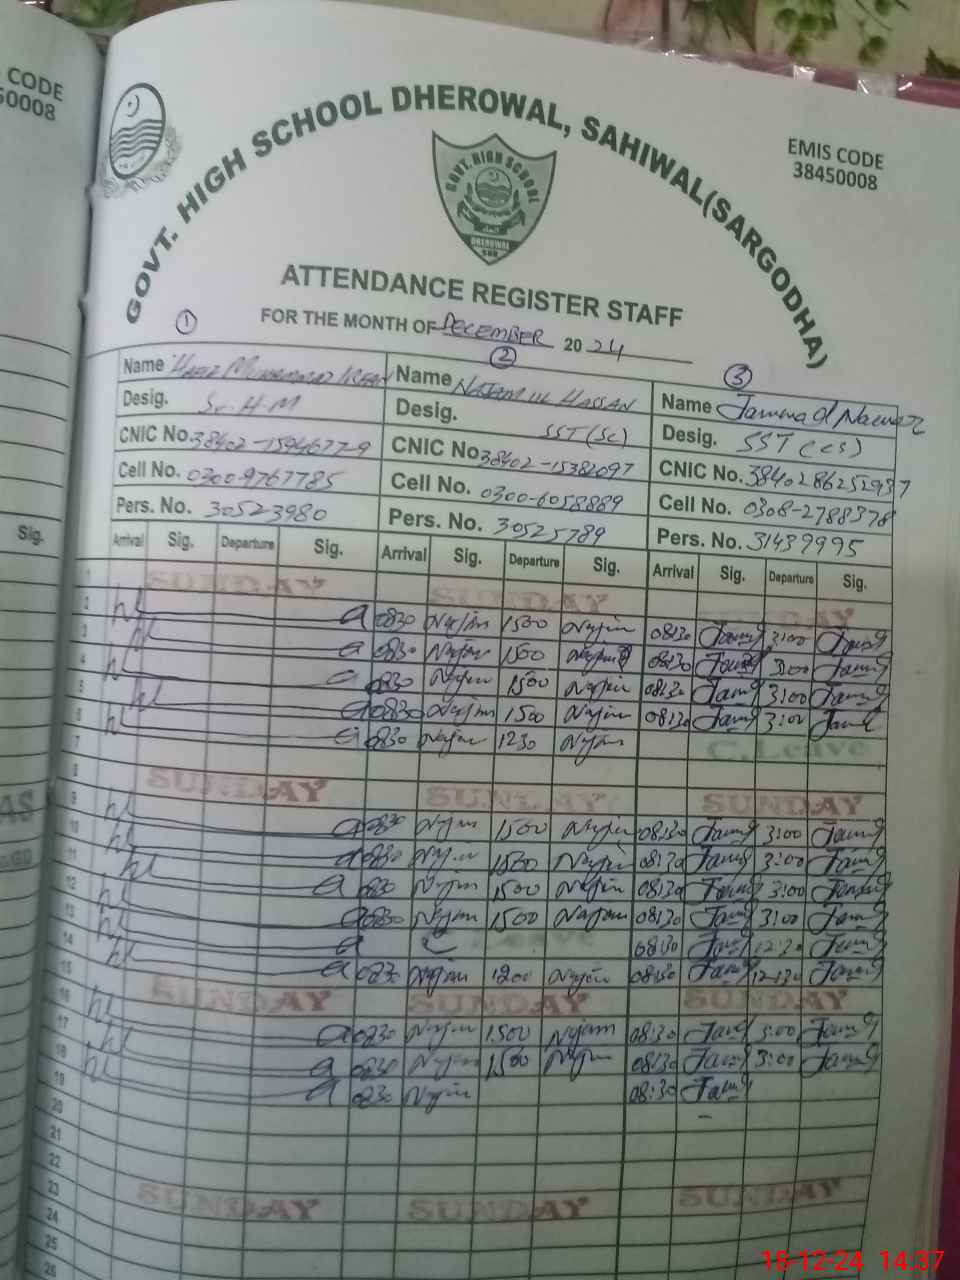 CODE
50008
EMIS CODE
38450008
GOVT. HIGH SCHOOL DHEROWAL, SAHIWAL(SARGODHA)
GOVT. HIGH SCHOOL
DHEROWAL
SGD
ATTENDANCE REGISTER STAFF
FOR THE MONTH OF DECEMBER 2024
1 2 3
Name Hafiz Muhammad Irfan Name Najam ul Hassan Name Jammad Nawaz
Desig. Sr. H-M Desig. SST (Sc) Desig. SST (CS)
CNIC No. 38402-1594677-9 CNIC No. 38402-15382097 CNIC No. 3840286252937
Cell No. 0300-9767785 Cell No. 0300-6058889 Cell No. 0308-2788378
Pers. No. 30523980 Pers. No. 30525789 Pers. No. 31439995
Sig.
Arrival Sig. Departure Sig. Arrival Sig. Departure Sig. Arrival Sig. Departure Sig.
1 SUNDAY SUNDAY SUNDAY
2 0830 Najam 1500 Najam 08:30 3:00
3 0830 Najam 1500 Najam 08:30 3:00
4 0830 Najam 1500 Najam 08:30 3:00
5 0830 Najam 1500 Najam 08:30 3:00
6 0830 Najam 1230 Najam C.Leave
7
8 SUNDAY SUNDAY SUNDAY
9 0830 Najam 1500 Najam 08:30 3:00
10 0830 Najam 1500 Najam 08:30 3:00
11 0830 Najam 1500 Najam 08:30 3:00
12 0830 Najam 1500 Najam 08:30 3:00
13 C.Leave 08:30 12:30
14 0830 Najam 1200 Najam 08:30 12:30
15 SUNDAY SUNDAY SUNDAY
16 0830 Najam 1500 Najam 08:30 3:00
17 0830 Najam 1500 Najam 08:30 3:00
18 0830 Najam 08:30
19
20
21
22 SUNDAY SUNDAY SUNDAY
23
24
25
26
18-12-24 14:37